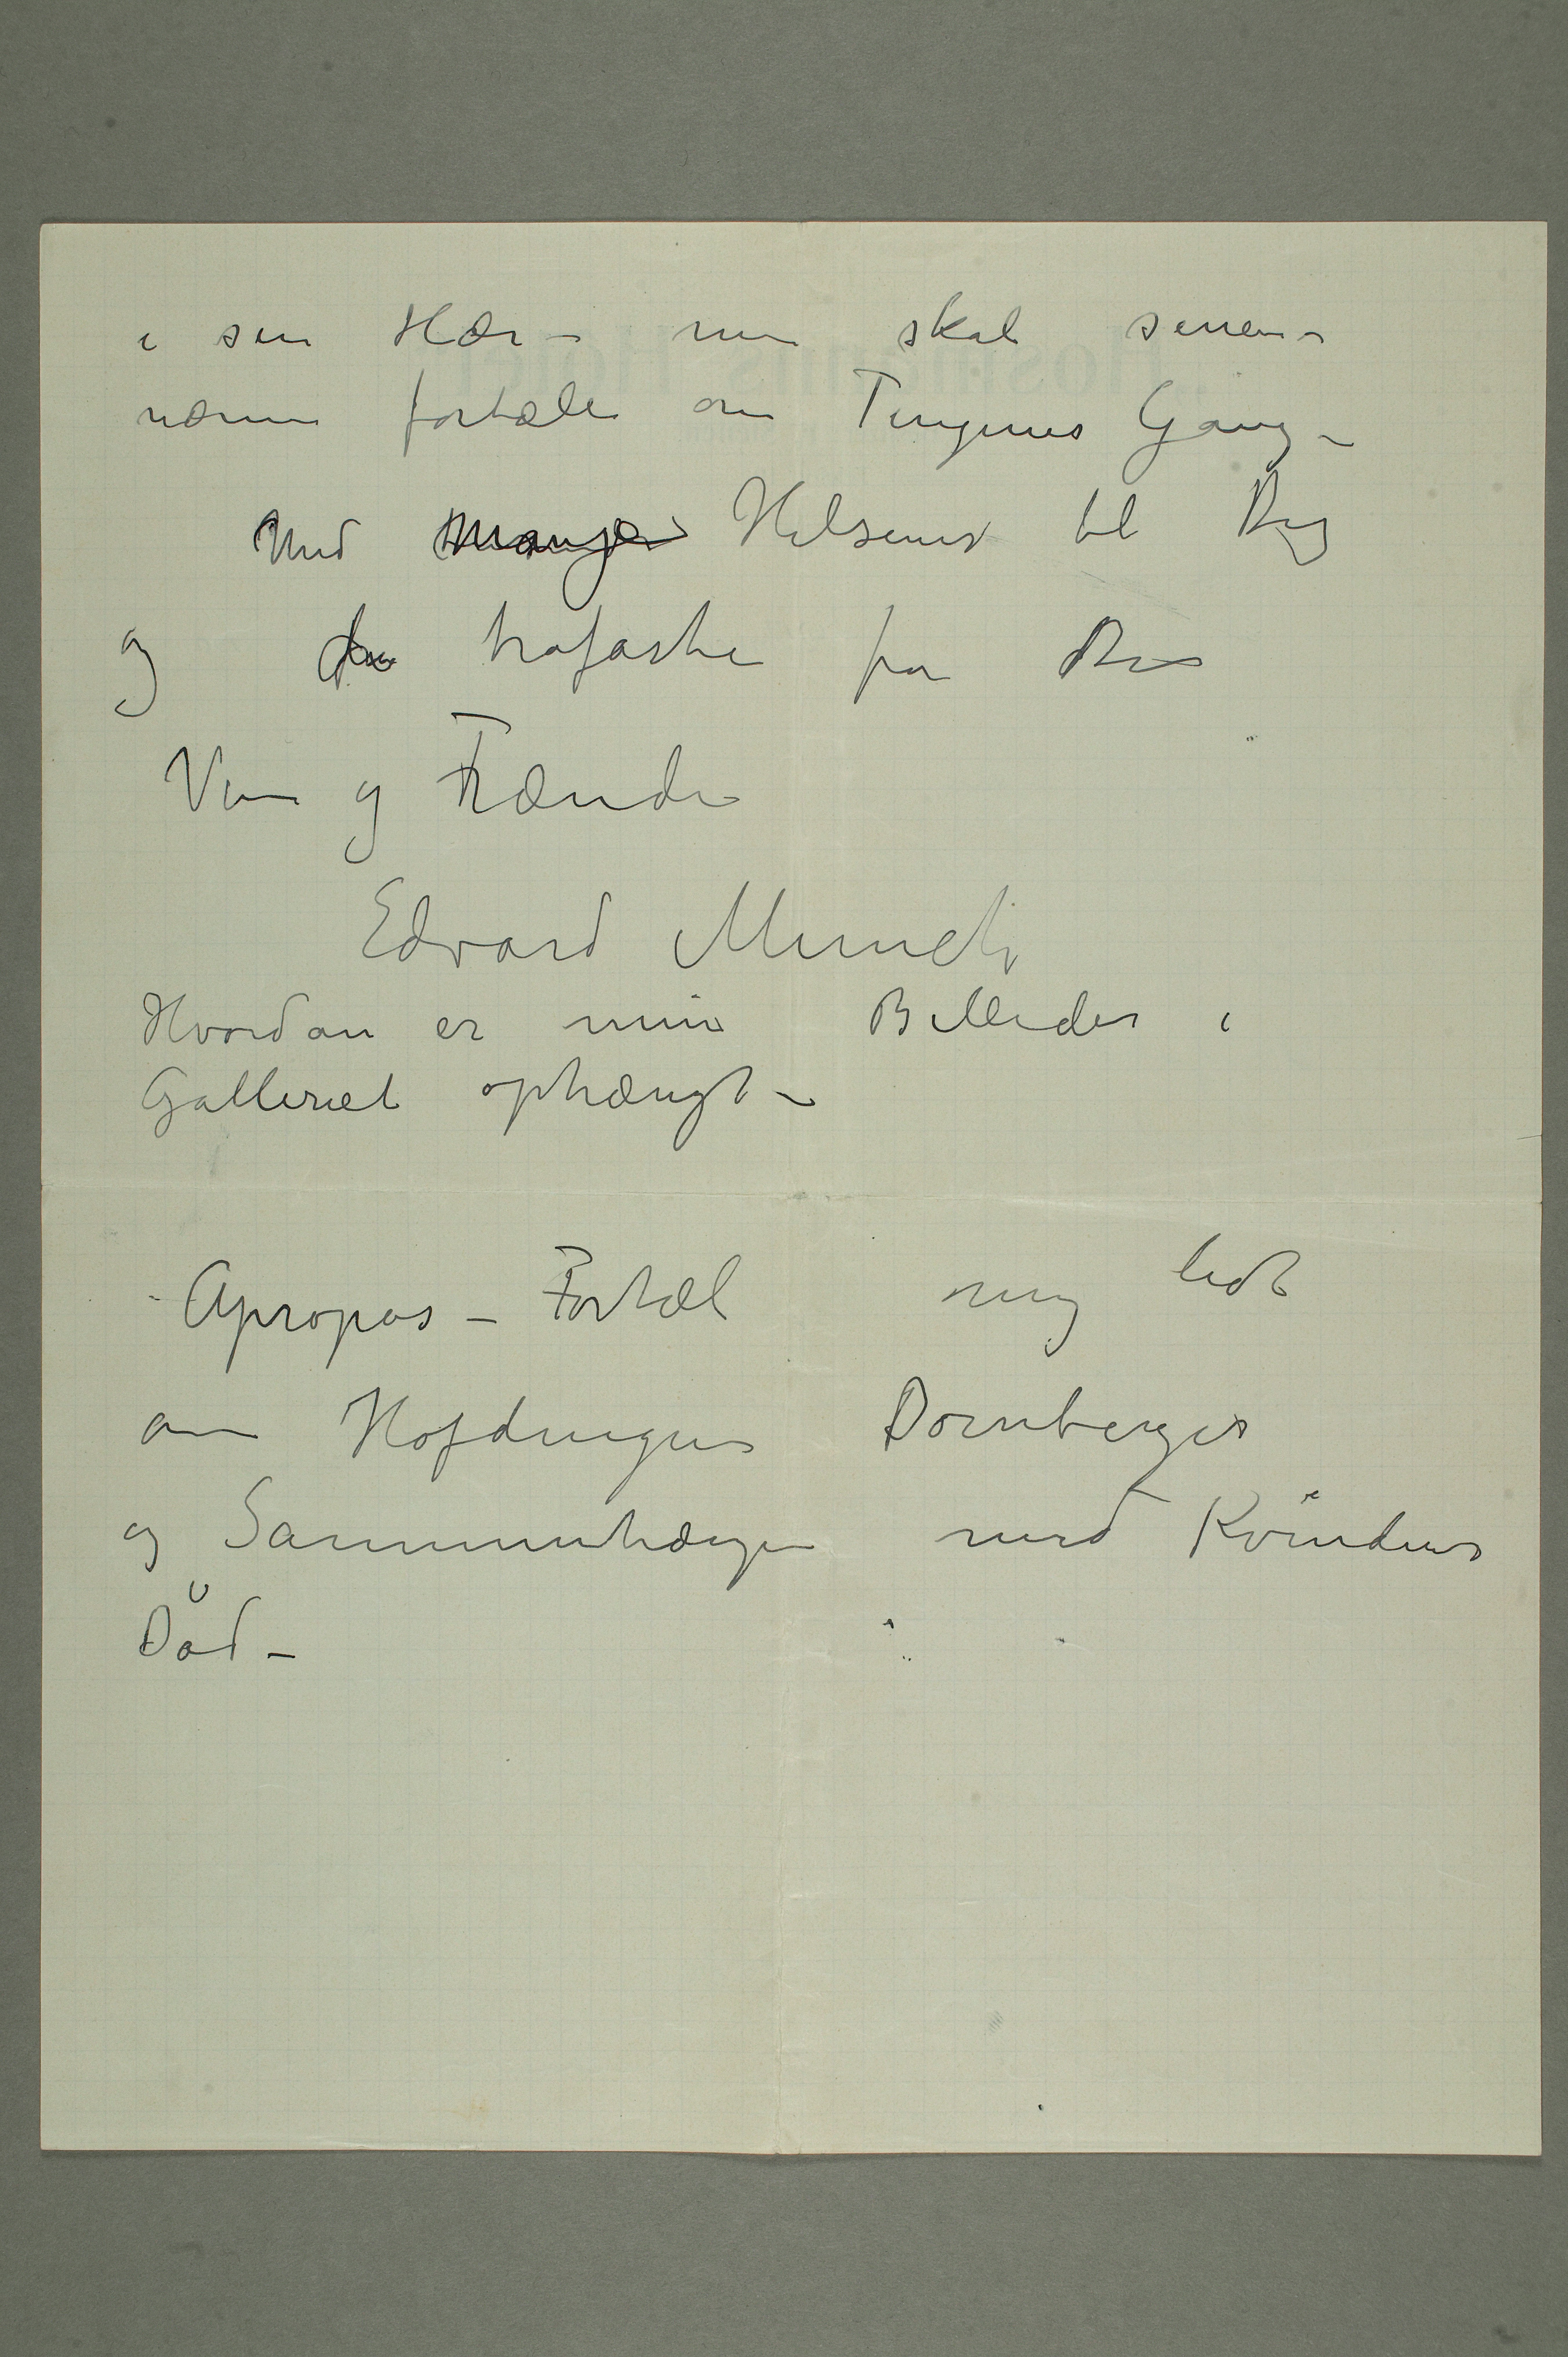 i sin Hær – men skal senere
nærmere fortælle om Tingenes Gang –
Med mange Hilsener til Dig
og de trofaste fra Din
Ven og Frænde
Edvard Munch
Hvordan er mine Billeder i
Galleriet ophængt –
Apropos – Fortæl mig lidt
om Høfdingen Dørnberger
og Sammenhængen med Kvindens
Död –